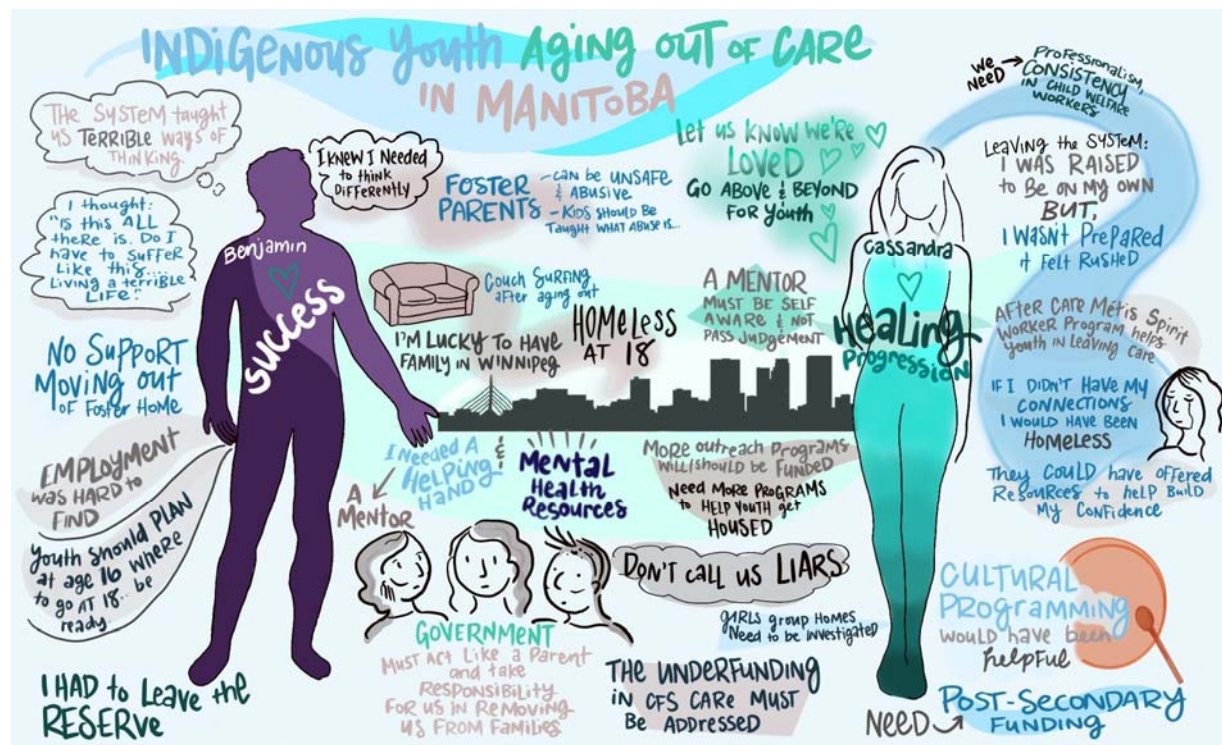 INDIGENOUS Youth AGING OUT OF CARE
IN MANITOBA
THE SYSTEM taught
US TERRIBLE WAYS OF
THINKING.
I KNEW I NEEDED
to think
DIFFERENTLY
I thought:
"IS this ALL
there is. Do I
have to SUFFER
Like this....
Living a terrible
LIFE."
Benjamin
SUCCESS
NO SUPPORT
MOVING OUT
OF FOSTER HOME
EMPLOYMENT
WAS HARD to
FIND
Youth Should PLAN
at age 16 where
to go AT 18.. be
ready
I HAD to Leave the
RESERVE
FOSTER
PARENTS
- CAN be UNSAFE
& ABUSIVE.
- KIDS SHOULD BE
Taught WHAT ABUSE IS...
Couch SURFING
after aging out
I'M LUCKY TO HAVE
FAMILY IN WINNIPEG
HOMELESS
AT 18
Let us KNOW WE'RE
LOVED
GO ABOVE & BEYOND
FOR Youth
A MENTOR
MUST BE SELF
AWARE & NOT
PASS JUDGEMENT
I NEEDED A
HELPING
HAND
&
A
MENTOR
Mental
Health
Resources
MORE outreach PROGRAMS
WILL/SHOULD BE FUNDED
NEED MORE PROGRAMS
to HELP YOUTH get
HOUSED
DON'T CALL US LIARS
GOVERNMENT
MUST ACT LIKE a PARENT
and take
RESPONSIBILITY
FOR US IN REMOVING
US FROM FAMILIES
GIRLS group HOMES
Need to be investigated
THE UNDERFUNDING
IN CFS CARE MUST
BE ADDRESSED
Cassandra
Healing
Progression
WE
NEED
PROFESSIONALISM,
CONSISTENCY
IN CHILD WELFARE
WORKERS
LEAVING the SYSTEM:
I WAS RAISED
to BE ON MY OWN
BUT,
I WASN'T PREPARED
it FELT RUSHED
AFTER CARE Métis Spirit
WORKER PROGRAM helps
Youth in Leaving Care
IF I DIDN'T HAVE MY
CONNECTIONS
I WOULD HAVE BEEN
HOMELESS
They COULD have OFFERED
RESOURCES to help BUILD
MY CONFIDENCE
CULTURAL
PROGRAMMING
WOULD HAVE been
helpful
NEED
POST-SECONDARY
FUNDING